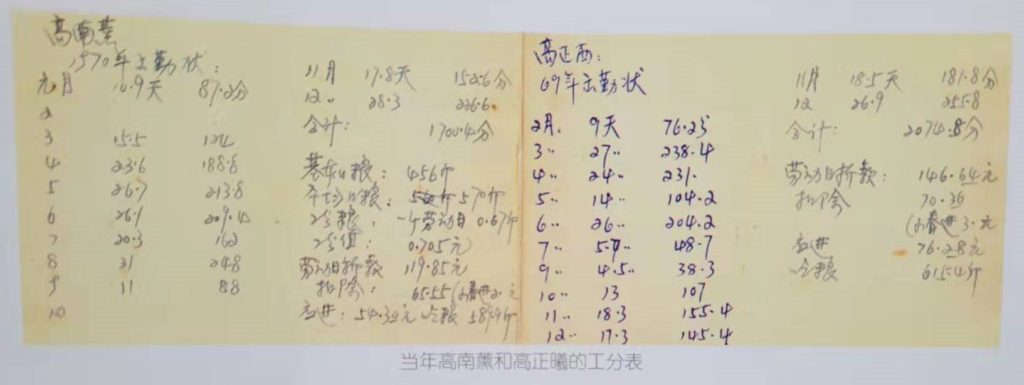 高南薰
1970年出勤状:
元月 10.9天 87.2分
2
3 15.5 124
4 23.6 188.8
5 26.7 213.8
6 26.1 209.4
7 20.3 162
8 31 248
9 11 88
10
11月 17.8天 152.6分
12〃 28.3 226.6
合计: 1700.4分
基本口粮: 456斤
平均口粮: 570斤
工分粮: 一个劳动日 0.67斤
工分值: 0.705元
劳动日折款 119.85元
扣除: 65.55
应进: 54.30元 吃粮 589斤
高正西:
69年出勤状
2月. 9天 76.25
3〃 27〃 238.4
4〃 24〃 231.
5〃 14〃 104.2
6〃 26〃 204.2
7〃 5.7〃 48.7
9〃 4.5〃 38.3
10〃 13 107
11〃 18.3 155.4
12〃 17.3 145.4
11月 18.5天 181.8分
12 26.9 255.8
合计: 2074.8分
劳动日折款: 146.64元
扣除 70.36
应进 76.28元
吃粮 615.4斤
当年高南薰和高正曦的工分表